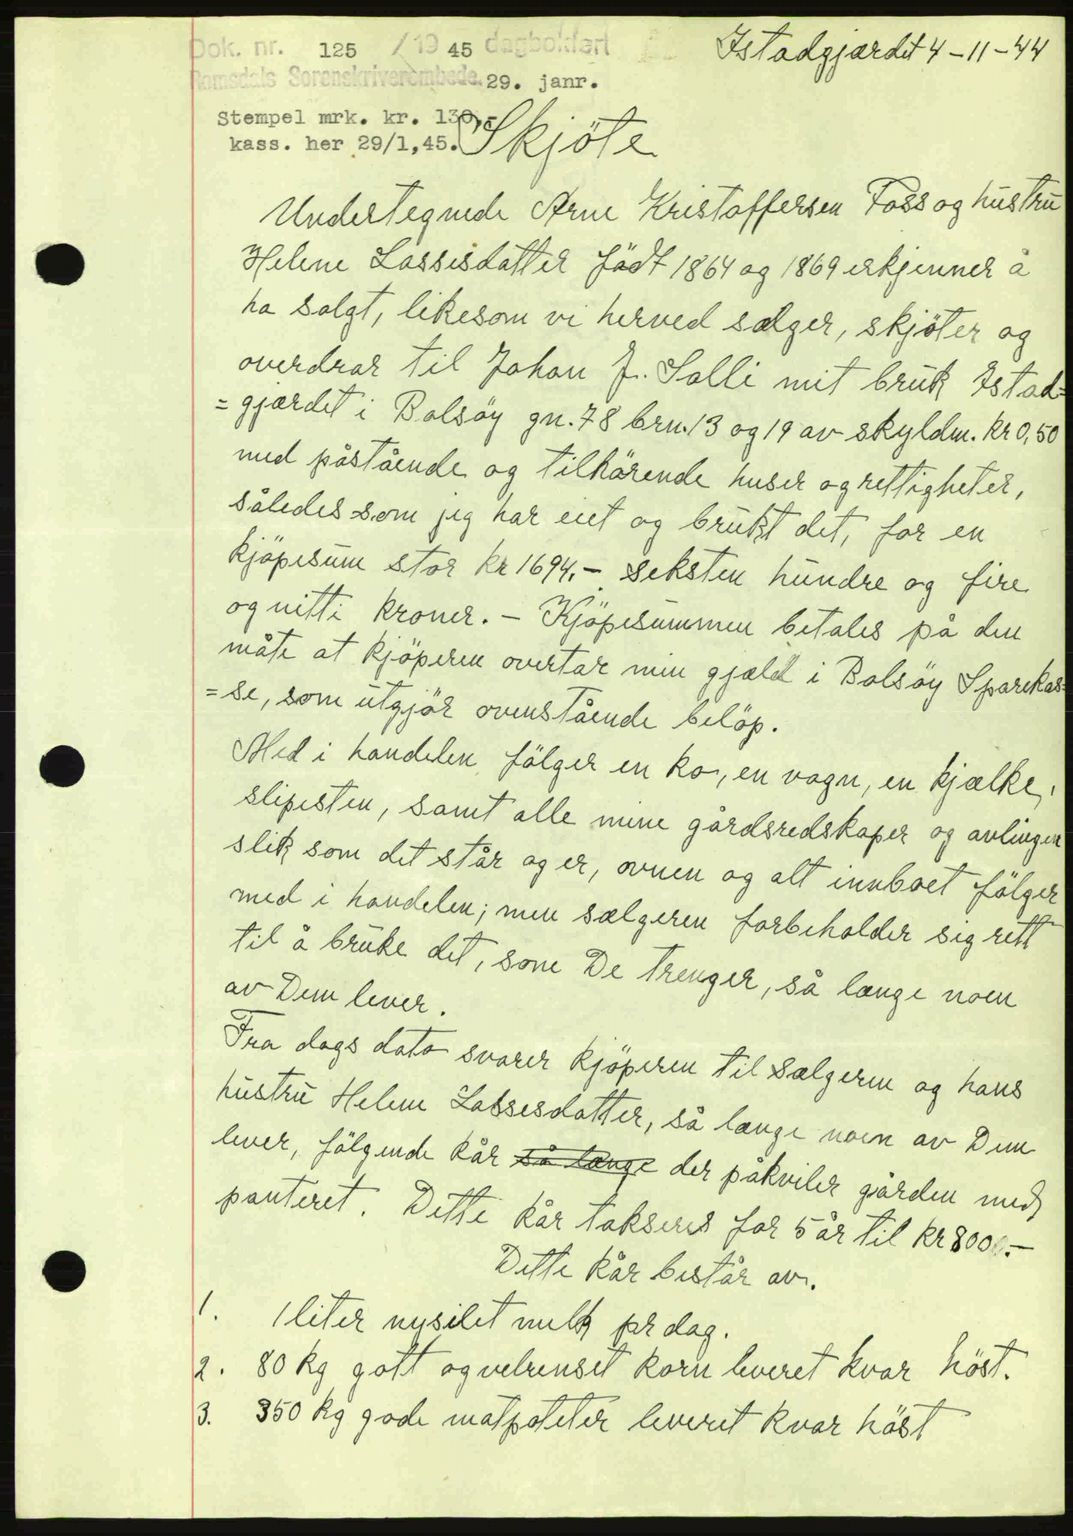 Dok. nr. 125 / 19 45 dagbokført
Istadgjærdet 4-11-44
Romsdals Sorenskriverembede. 29. janr.
Stempel mrk. kr. 130,-
kass. her 29/1,45.
Skjöte
Undertegnede Arne Kristoffersen Foss og hustru
Helene Lassesdatter födt 1864 og 1869 erkjenner å
ha solgt, likesom vi herved sælger, skjöter og
overdrar til Johan J. Salli mit bruk Istad=
=gjærdet i Bolsöy gn. 78 brn. 13 og 19 av skyldm. kr 0,50
med påstående og tilhörende huser og rettigheter,
således som jeg har eiet og brukt det, for en
kjöpesum stor kr 1694.- seksten hundre og fire
og nitti kroner. - Kjöpesummen betales på den
måte at kjöperen overtar min gjæld i Bolsöy Sparekas=
=se, som utgjör ovenstående belöp.
Med i handelen fölger en ko, en vogn, en kjælke,
slipesten, samt alle mine gårdsredskaper og avlingen
slik som det står og er, ovnen og alt innboet fölger
med i handelen; men sælgeren forbeholder sig rett
til å bruke det, som De trenger, så længe noen
av Dem lever.
Fra dags dato svarer kjöperen til sælgeren og hans
hustru Helene Lassesdatter, så længe noen av Dem
lever, fölgende kår så længe der påkviler gården med
panteret. Dette kår takseres for 5 år til kr 800.-
Dette kår består av.
1. 1 liter nysilet melk pr dag.
2. 80 kg gott og velrenset korn leveret kvar höst.
3. 350 kg gode matpoteter leveret kvar höst